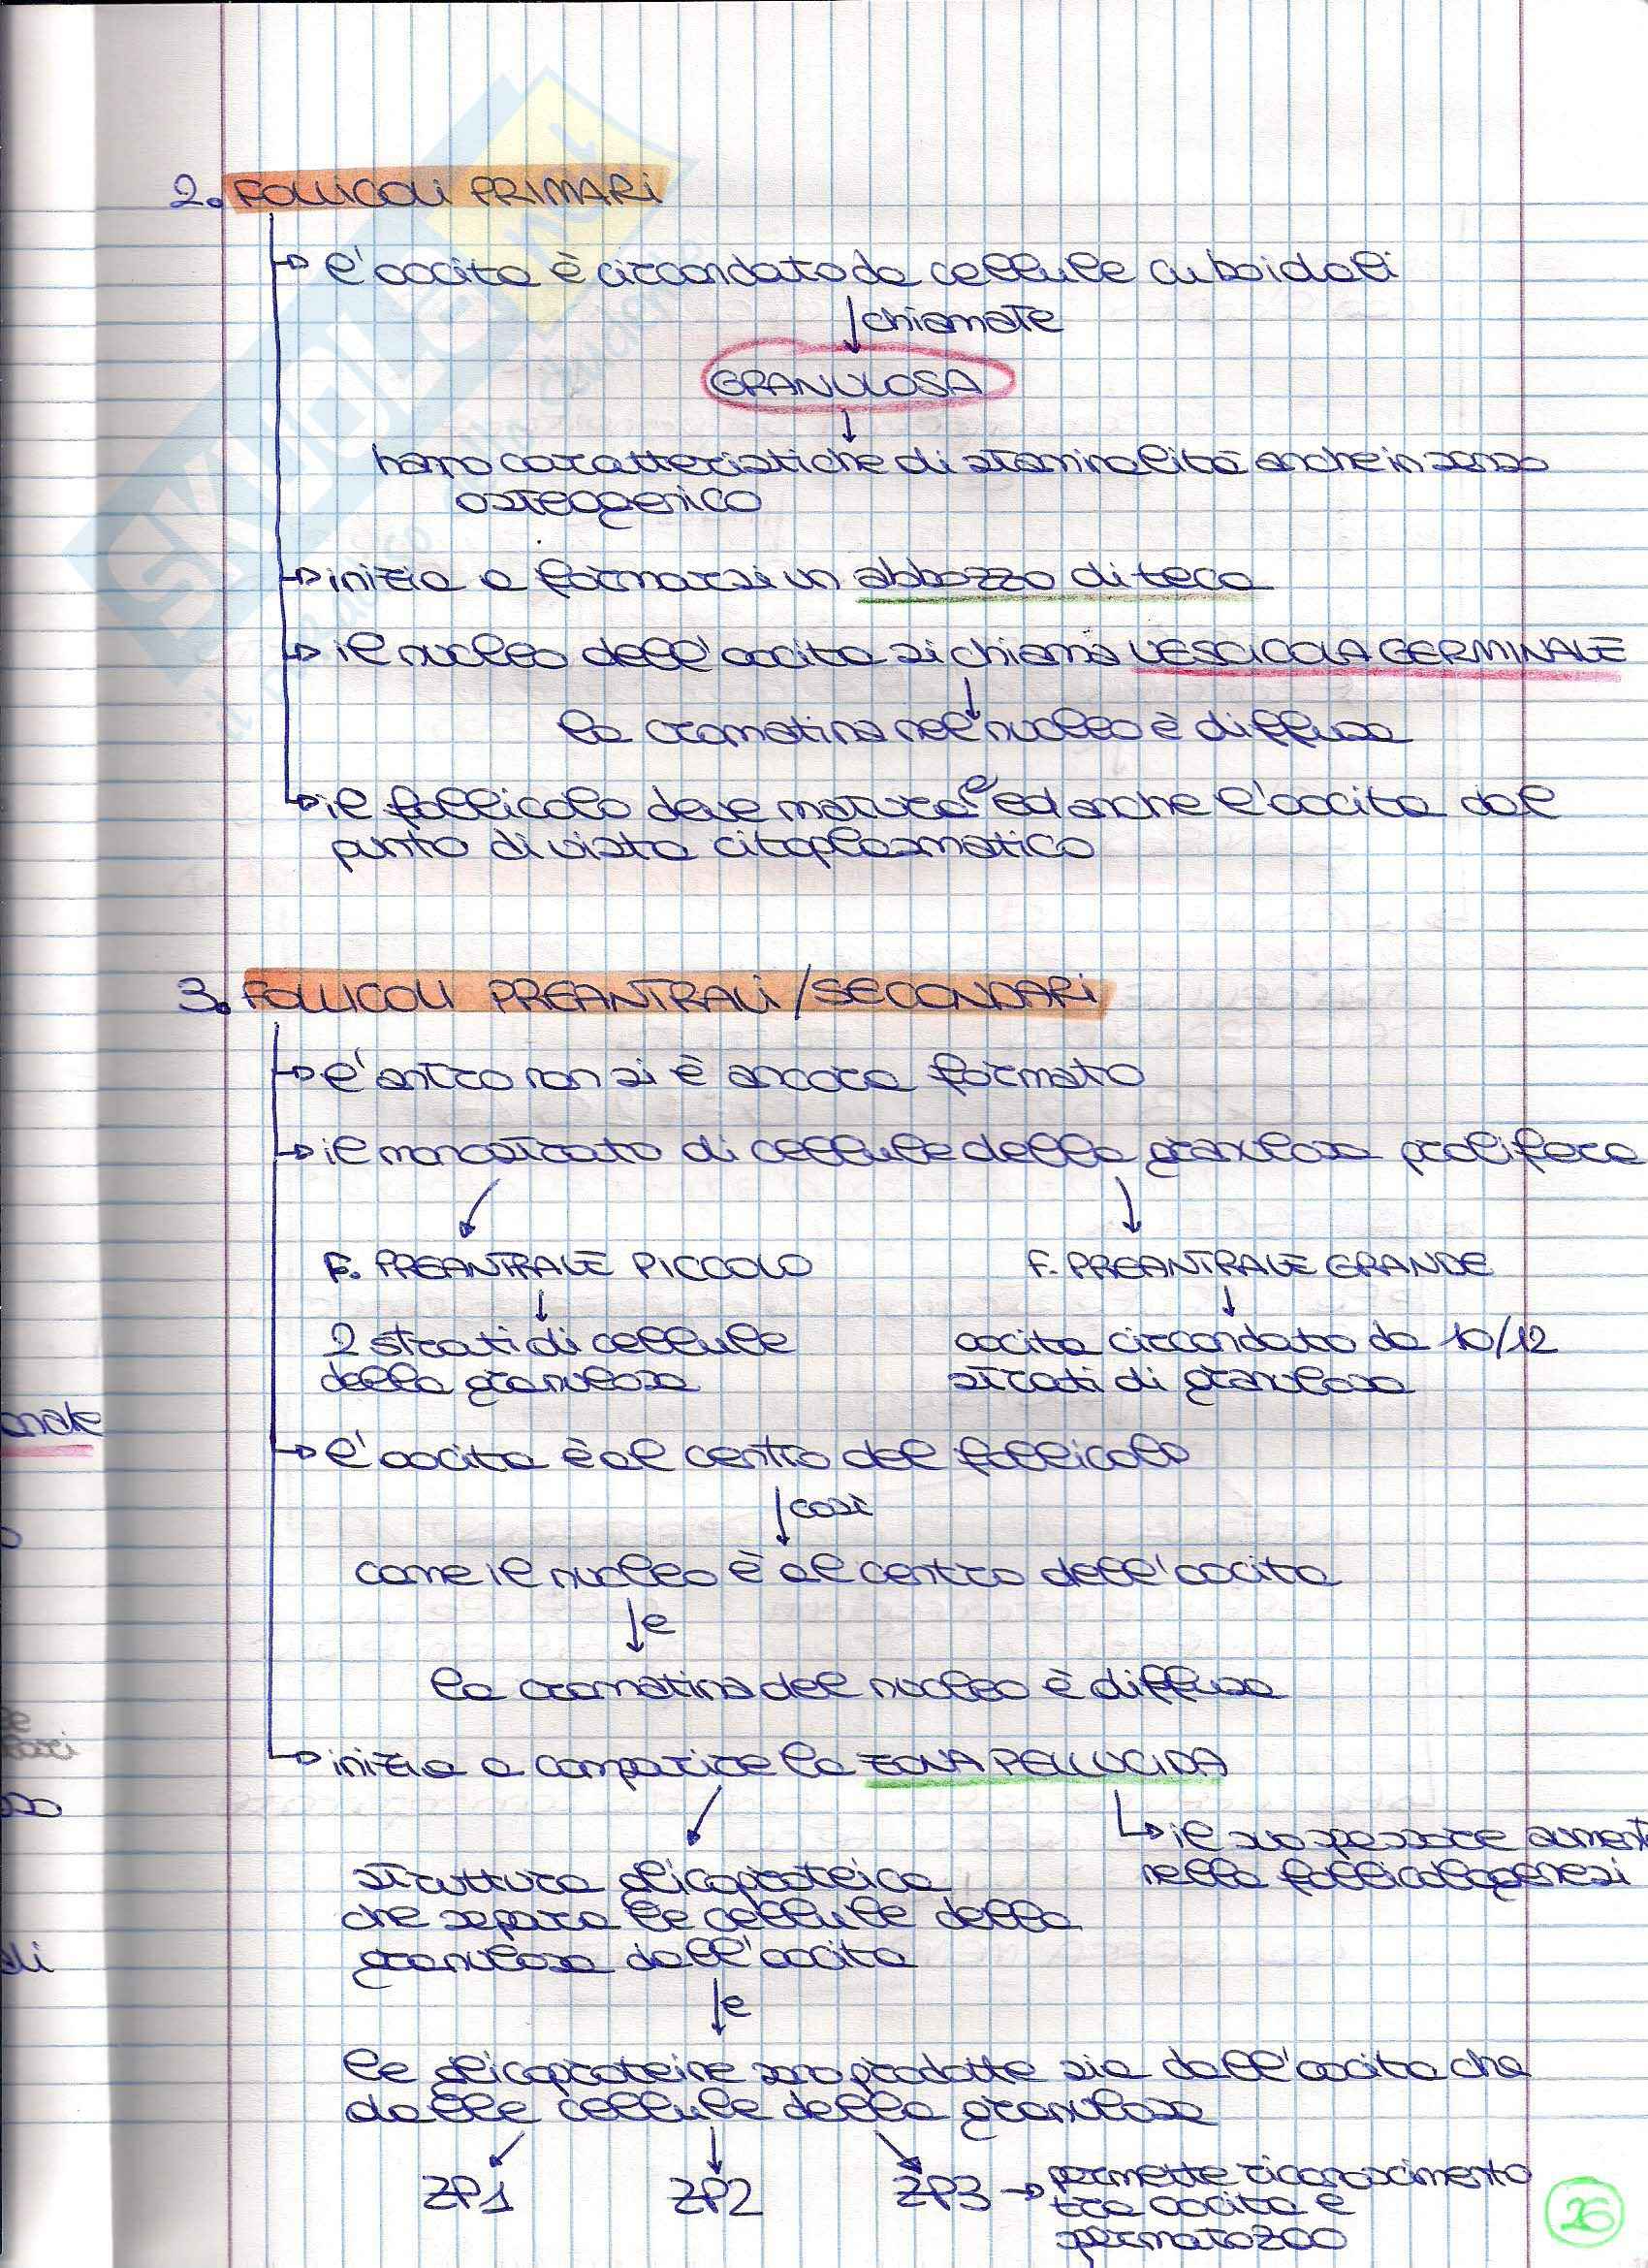 2. FOLLICOLI PRIMARI
l'oocita è circondato da cellule cuboidali
chiamate
GRANULOSA
hanno caratteristiche di staminalità anche in senso
osteogenico
inizia a formarsi un abbozzo di teca
il nucleo dell'oocita si chiama VESCICOLA GERMINALE
la cromatina nel nucleo è diffusa
il follicolo deve maturare ed anche l'oocita dal
punto di vista citoplasmatico
3. FOLLICOLI PREANTRALI/SECONDARI
l'antro non si è ancora formato
il monostrato di cellule della granulosa prolifera
F. PREANTRALE PICCOLO F. PREANTRALE GRANDE
2 strati di cellule oocita circondato da 10/12
della granulosa strati di granulosa
l'oocita è al centro del follicolo
così
come il nucleo è al centro dell'oocita
e
la cromatina del nucleo è diffusa
inizia a comparire la ZONA PELLUCIDA
il suo spessore aument
struttura glicoproteica nella follicologenesi
che separa le cellule della
granulosa dall'oocita
e
le glicoproteine sono prodotte sia dall'oocita che
dalle cellule della granulosa
ZP1 ZP2 ZP3 permette riconoscimento
tra oocita e
spermatozoo
26
SKUOLA.net